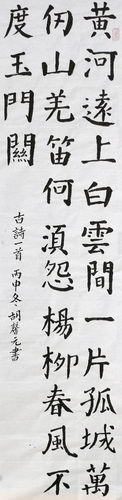 黃河遠上白雲間一片孤城萬
仞山羌笛何須怨楊柳春風不
度玉門關
古詩一首 丙申冬 胡馨元書